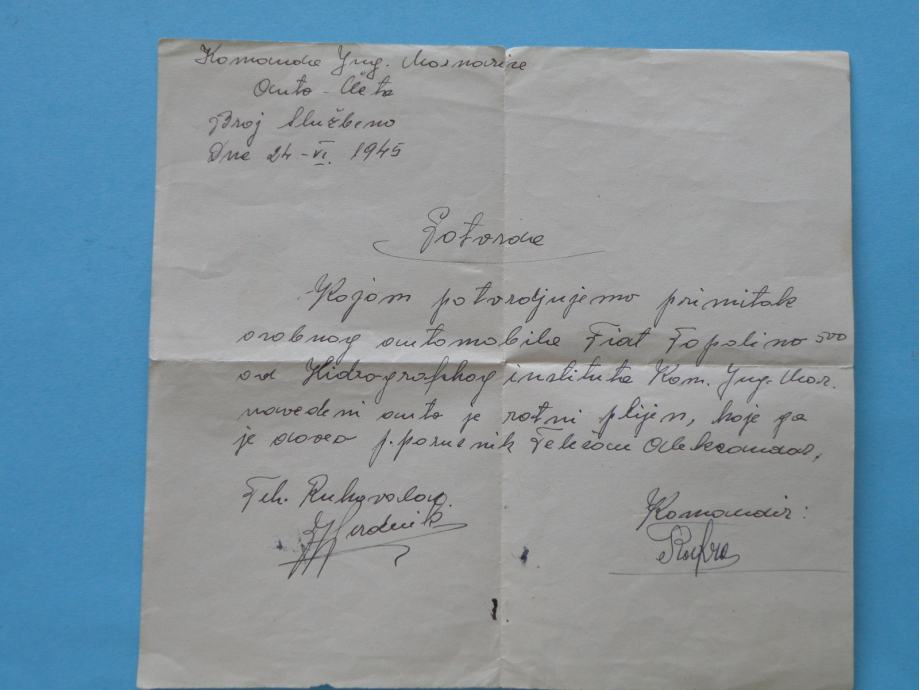 Komanda Jug. Mornarice
Auto-četa
Broj Službeno
Dne 24-VI. 1945
Potvrda
Kojom potvrdjujemo primitak
osobnog automobila Fiat Topolino 500
od Hidrografskog instituta Kom. Jug. Mor.
navedeni auto je ratni plijen, koje ga
je doveo p.poručnik Aleksandar,
Teh. Rukovalac
Komandir: